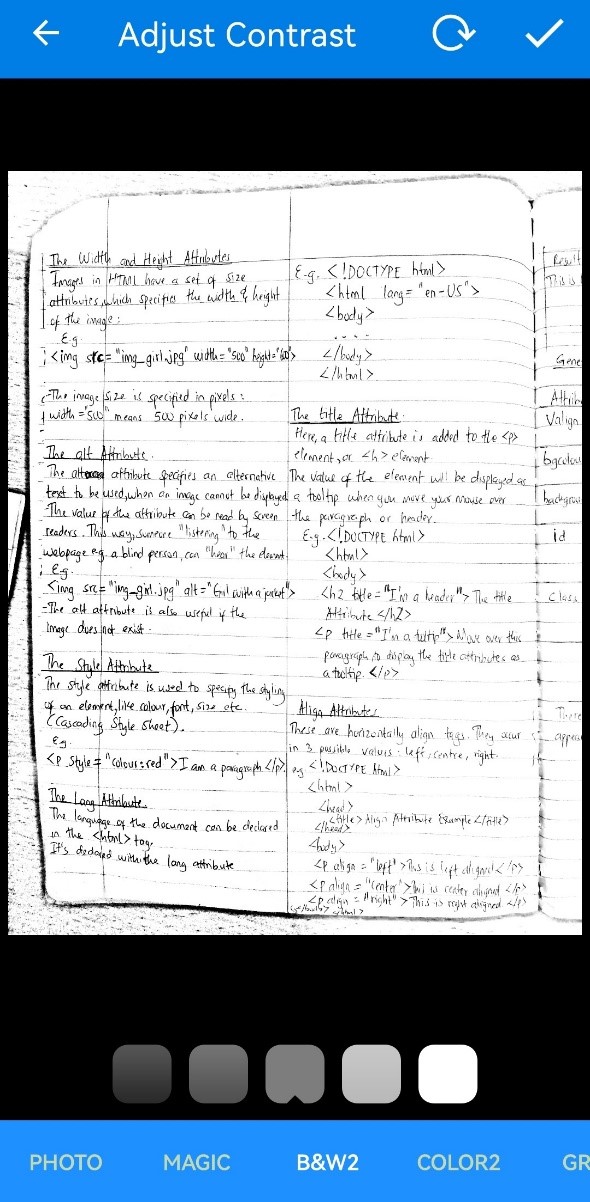 Adjust Contrast
The Width and Height Attributes
Images in HTML have a set of size
attributes, which specifies the width & height
of the image:
Eg.
<img src="img_girl.jpg" width="500" height="600">
-The image size is specified in pixels:
width="500" means 500 pixels wide.
The alt Attribute.
The alt attribute specifies an alternative
text to be used, when an image cannot be displayed
The value of the attribute can be read by screen
readers. This way, someone "listening" to the
webpage e.g. a blind person, can "hear" the element.
Eg.
<img src="img_girl.jpg" alt="Girl with a jacket">
-The alt attribute is also useful if the
image does not exist.
The Style Attribute
The style attribute is used to specify the styling
of an element, like colour, font, size etc.
(Cascading Style Sheet).
eg.
<p style="colour:red">I am a paragraph</p>
The Lang Attribute
The language of the document can be declared
in the <html> tag.
It's declared with the lang attribute
E.g. <!DOCTYPE html>
<html lang="en-US">
<body>
....
</body>
</html>
The title Attribute.
Here, a title attribute is added to the <p>
element, or <h> element
The value of the element will be displayed as
a tooltip when you move your mouse over
the paragraph or header.
E.g. <!DOCTYPE html>
<html>
<body>
<h2 title="I'm a header"> The title
Attribute </h2>
<p title="I'm a tooltip"> Move over this
paragraph, to display the title attributes as
a tooltip. </p>
Align Attributes
These are horizontally align tags. They occur
in 3 possible values: left, centre, right.
eg <!DOCTYPE html>
<html>
<head>
<title> Align Attribute Example </title>
</head>
<body>
<p align="left">This is left aligned</p>
<p align="center">This is center aligned </p>
<p align="right">This is right aligned </p>
</body> </html>
Result
This is
Gene
Attrib
Valign
bgcolou
backgrou
id
Class
These
appear
PHOTO
MAGIC
B&W2
COLOR2
GR